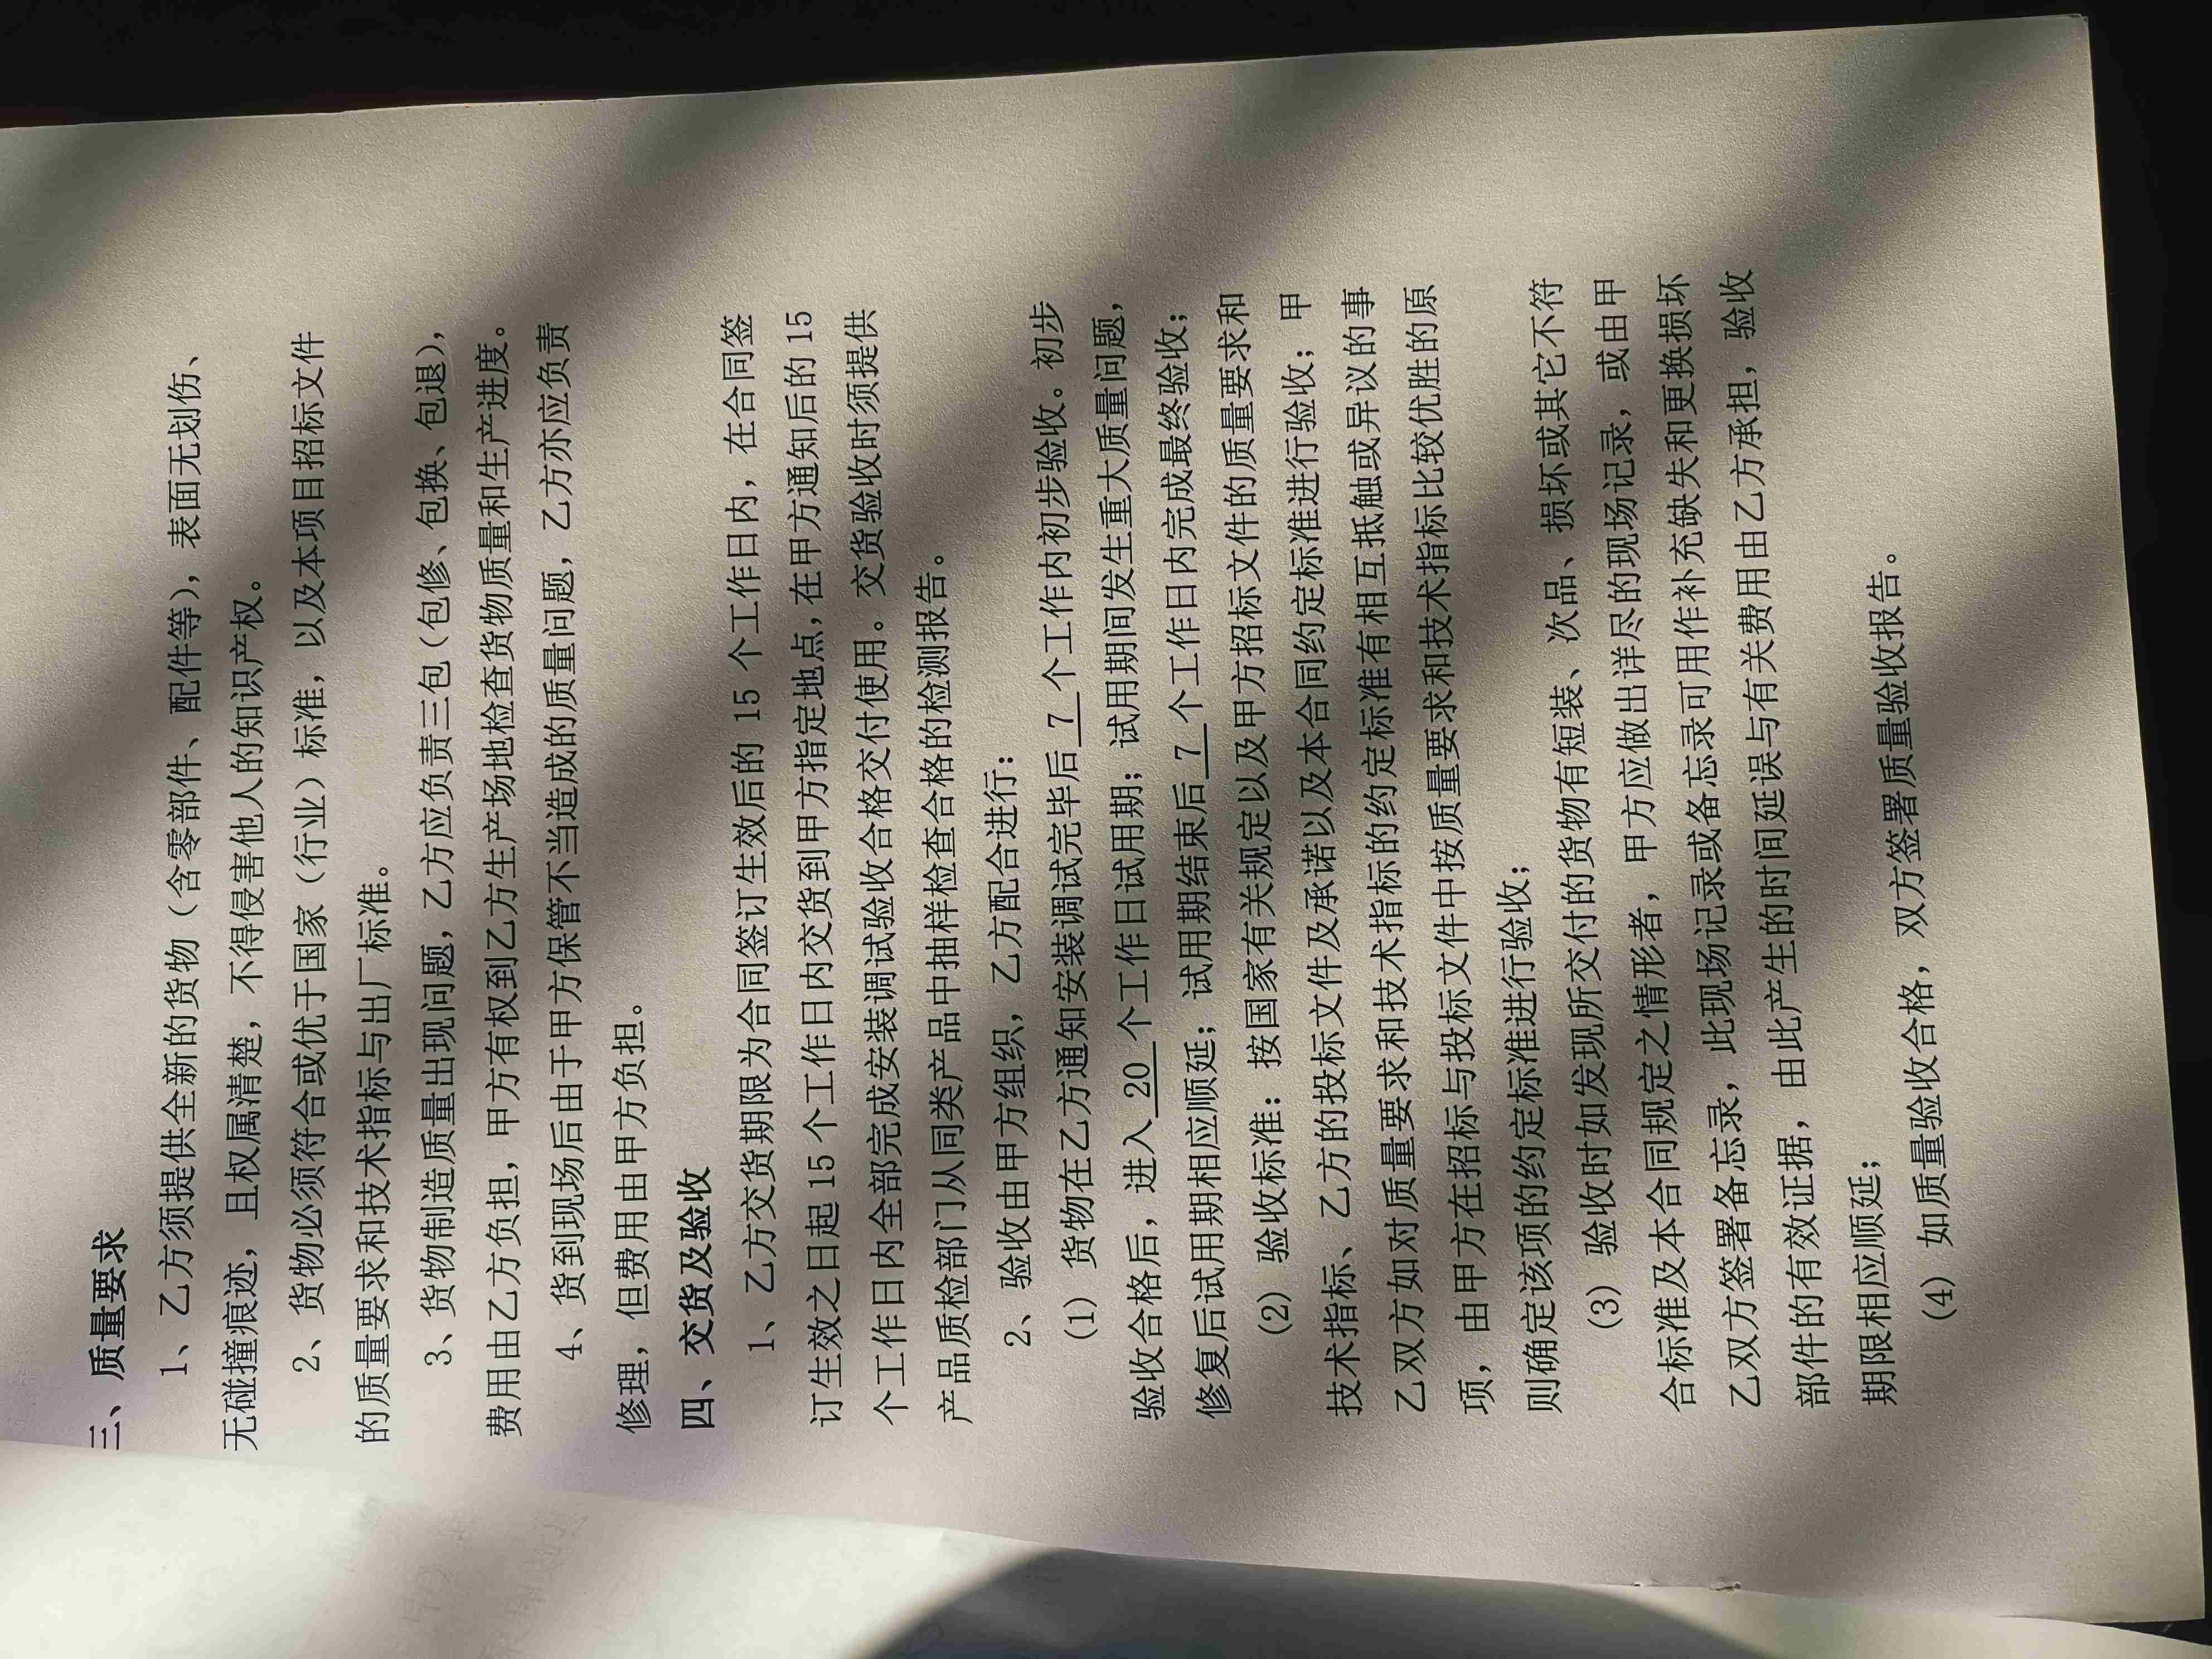 三、质量要求
1、乙方须提供全新的货物（含零部件、配件等），表面无划伤、
无碰撞痕迹，且权属清楚，不得侵害他人的知识产权。
2、货物必须符合或优于国家（行业）标准，以及本项目招标文件
的质量要求和技术指标与出厂标准。
3、货物制造质量出现问题，乙方应负责三包（包修、包换、包退），
费用由乙方负担，甲方有权到乙方生产场地检查货物质量和生产进度。
4、货到现场后由于甲方保管不当造成的质量问题，乙方亦应负责
修理，但费用由甲方负担。
四、交货及验收
1、乙方交货期限为合同签订生效后的 15 个工作日内，在合同签
订生效之日起 15 个工作日内交货到甲方指定地点，在甲方通知后的 15
个工作日内全部完成安装调试验收合格交付使用。交货验收时须提供
产品质检部门从同类产品中抽样检查合格的检测报告。
2、验收由甲方组织，乙方配合进行：
（1）货物在乙方通知安装调试完毕后 7 个工作内初步验收。初步
验收合格后，进入 20 个工作日试用期；试用期间发生重大质量问题，
修复后试用期相应顺延；试用期结束后 7 个工作日内完成最终验收；
（2）验收标准：按国家有关规定以及甲方招标文件的质量要求和
技术指标、乙方的投标文件及承诺以及本合同约定标准进行验收；甲
乙双方如对质量要求和技术指标的约定标准有相互抵触或异议的事
项，由甲方在招标与投标文件中按质量要求和技术指标比较优胜的原
则确定该项的约定标准进行验收；
（3）验收时如发现所交付的货物有短装、次品、损坏或其它不符
合标准及本合同规定之情形者，甲方应做出详尽的现场记录，或由甲
乙双方签署备忘录，此现场记录或备忘录可用作补充缺失和更换损坏
部件的有效证据，由此产生的时间延误与有关费用由乙方承担，验收
期限相应顺延；
（4）如质量验收合格，双方签署质量验收报告。